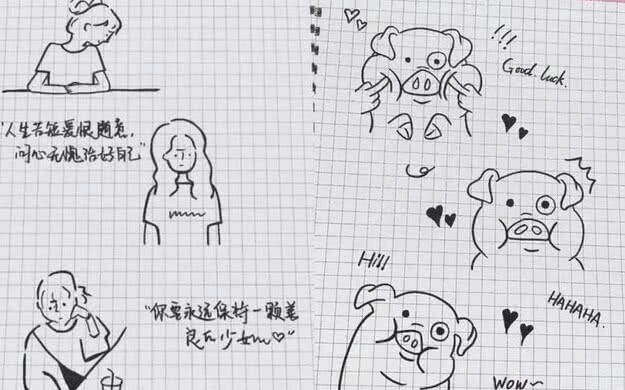 "人生苦短爱恨随意,
问心无愧治好自己"
"你要永远保持一颗善
良的少女心♡"
!!!
Good luck.
Hi!!!
HAHAHA.
WOW~